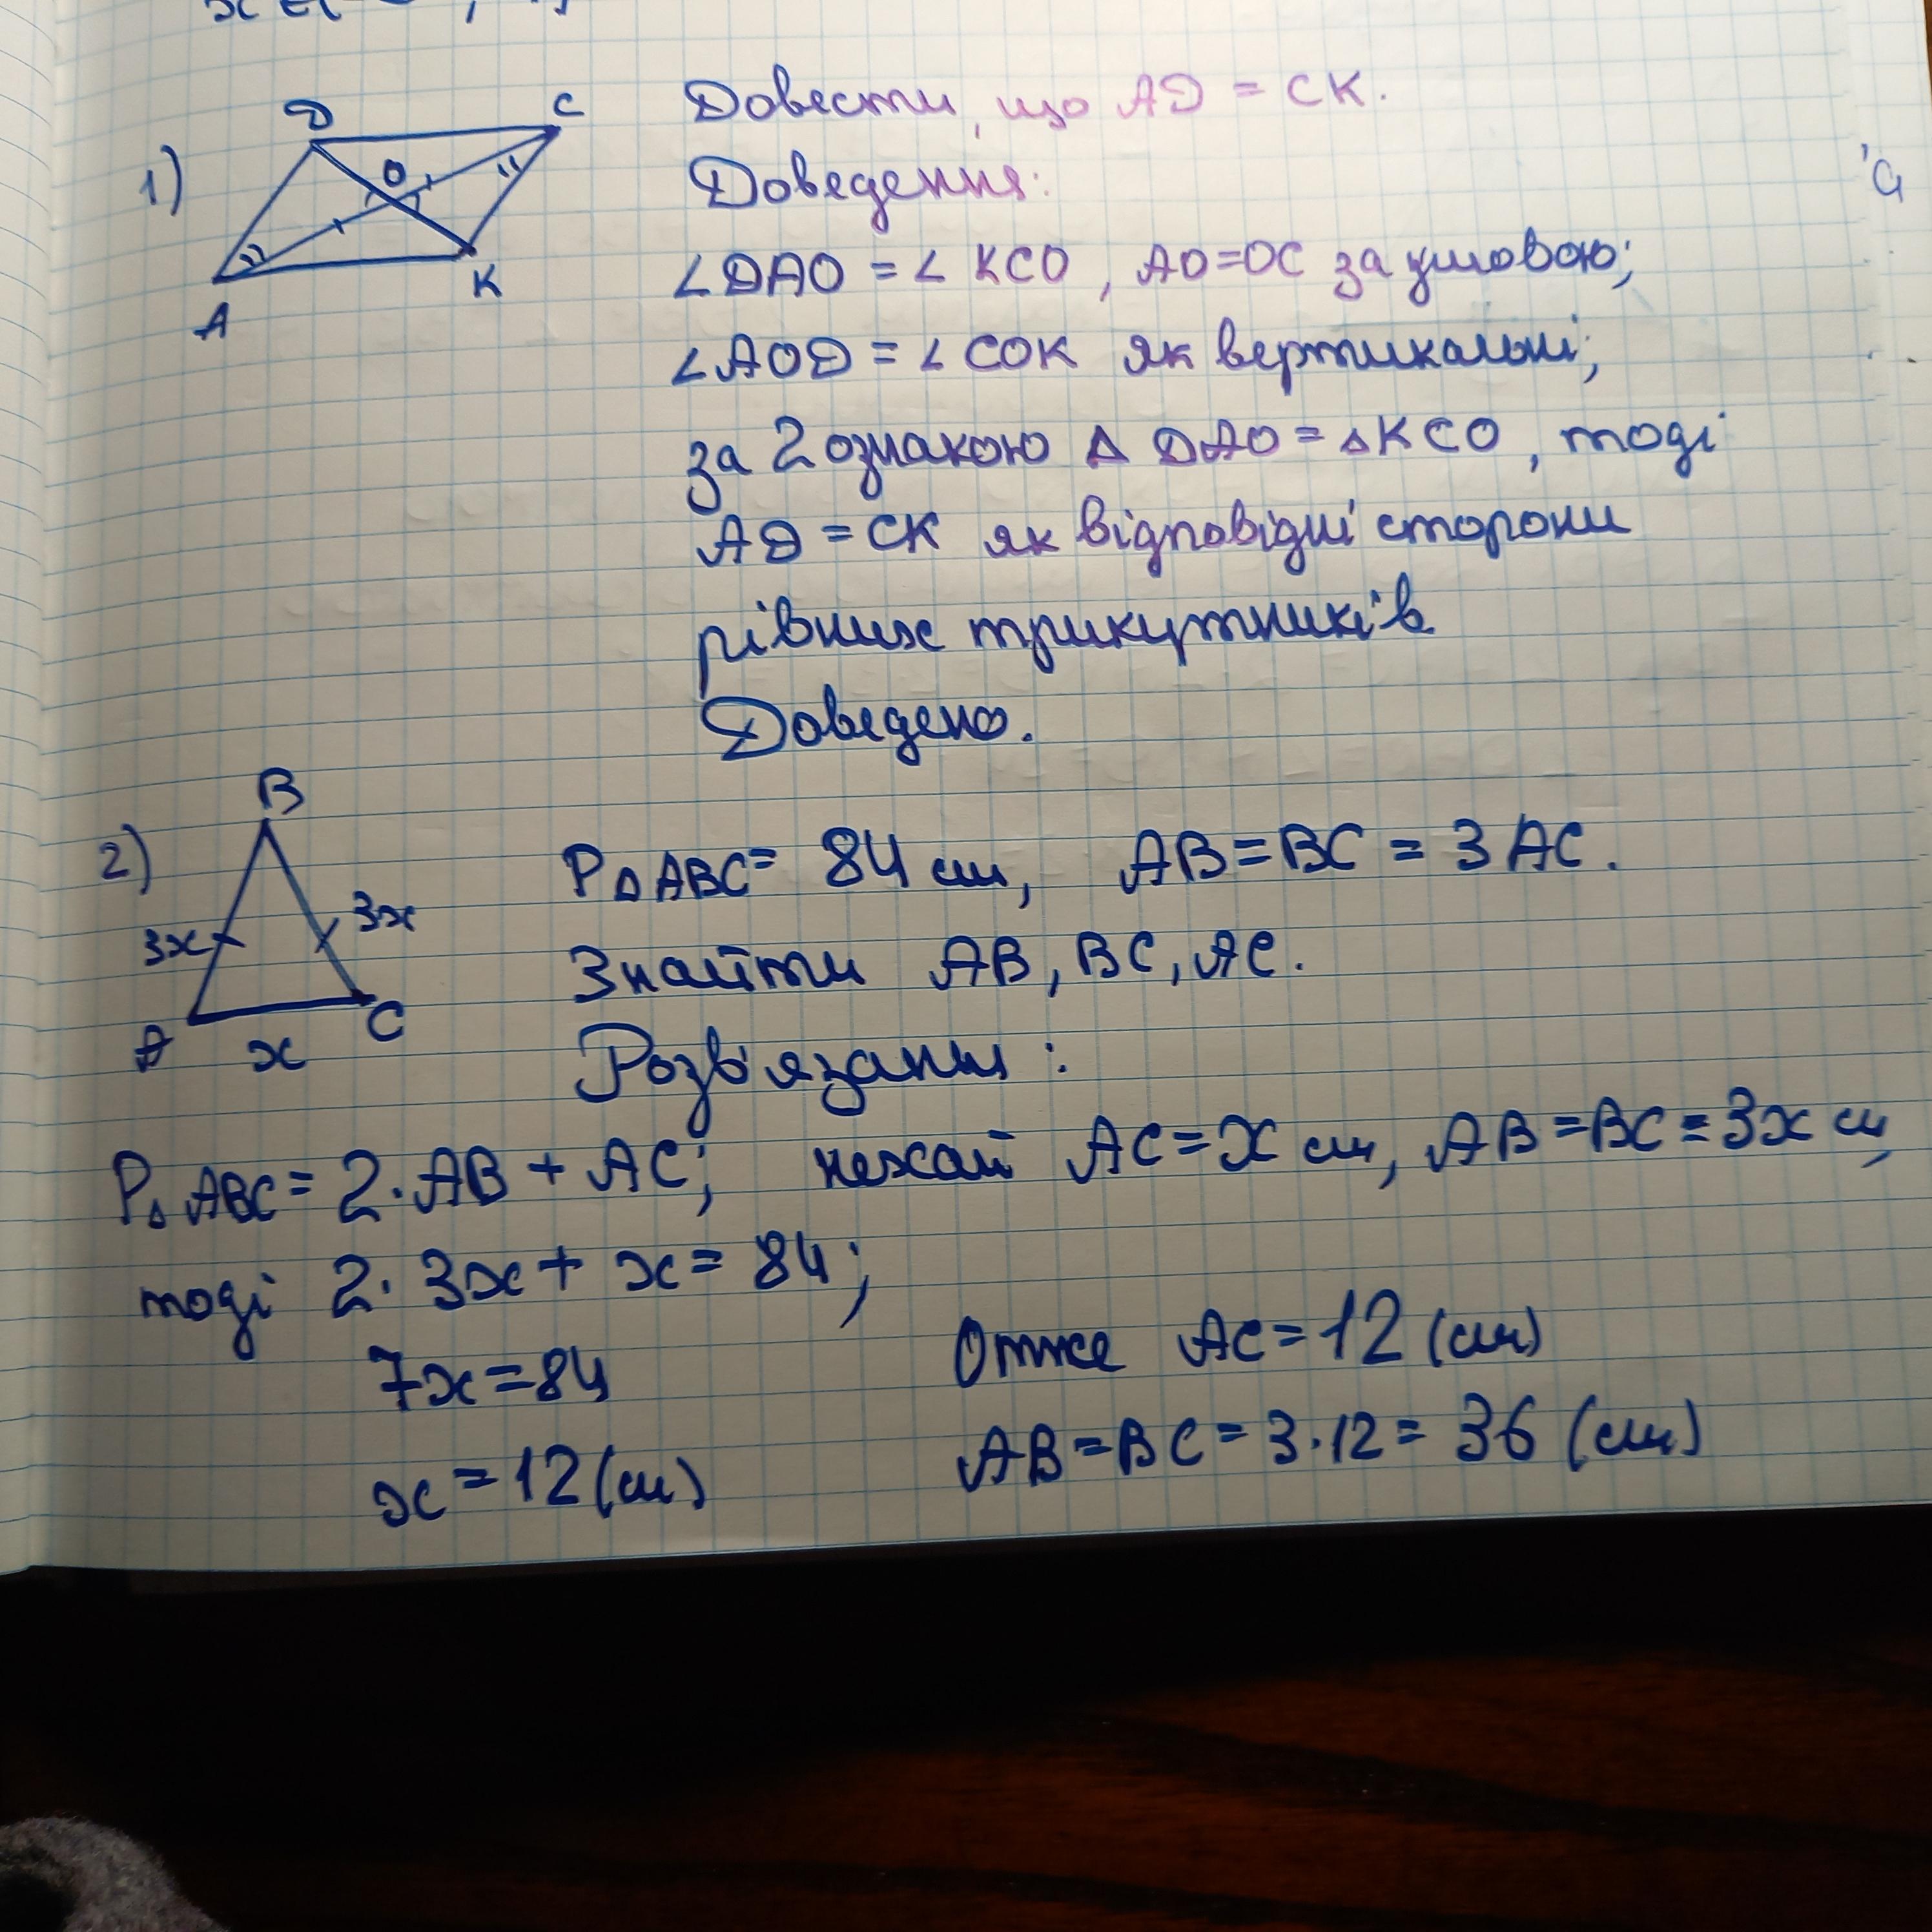 1)
D
C
O
A
K
Довести, що AD = CK.
Доведення:
∠DAO = ∠ KCO, AO=OC за умовою;
∠AOD = ∠ COK як вертикальні;
за 2 ознакою Δ DAO = ΔKCO, тоді
AD = CK як відповідні сторони
рівних трикутників
Доведено.
2)
B
3x
3x
A
x
C
PΔABC= 84 см, AB=BC = 3AC.
Знайти AB, BC, AC.
Розв'язання:
PΔABC= 2·AB + AC; нехай AC=x см, AB=BC=3x см,
тоді 2·3x + x = 84;
7x=84
x = 12 (см)
Отже AC=12 (см)
AB=BC=3·12= 36 (см)